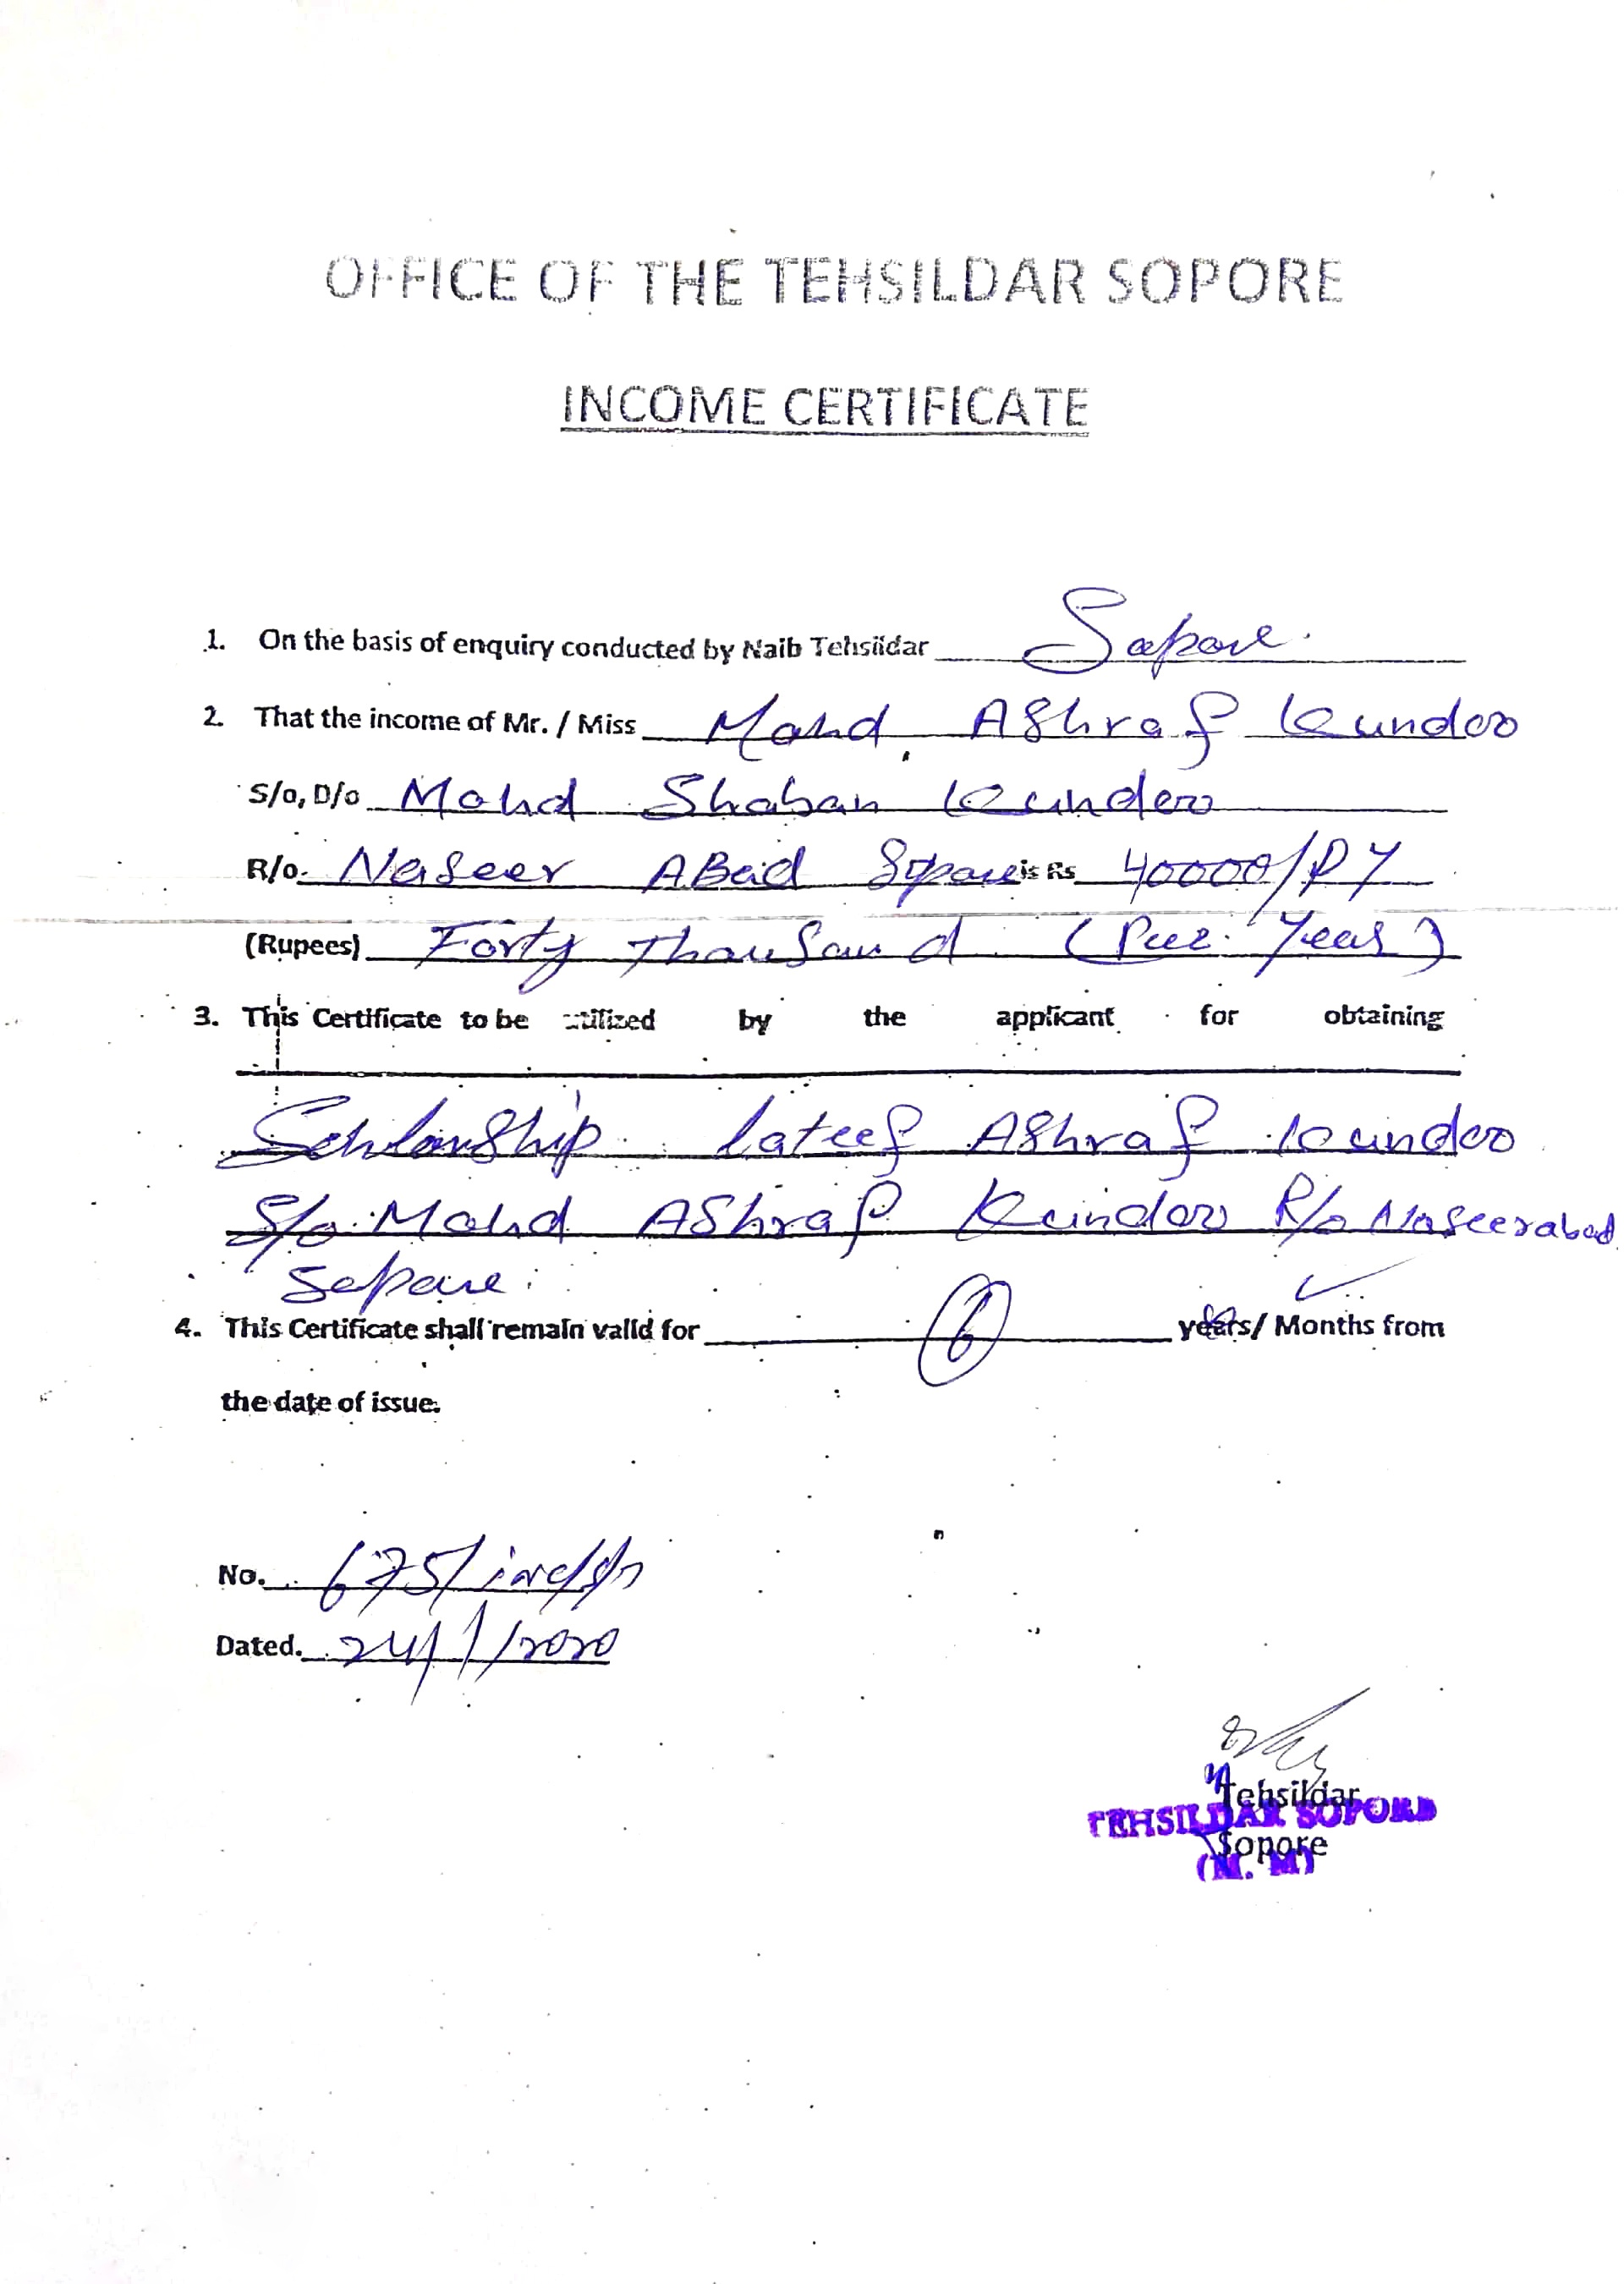 OFFICE OF THE TEHSILDAR SOPORE
INCOME CERTIFICATE
1. On the basis of enquiry conducted by Naib Tehsildar Sopore.
2. That the income of Mr. / Miss Mohd Ashraf Kundoo
S/o, D/o Mohd Shaban Kundoo
R/o. Naseer ABad Sopore is Rs 40000/PY
(Rupees) Forty Thousand (Per Year)
3. This Certificate to be utilized by the applicant for obtaining
Scholarship Lateef Ashraf Kundoo
S/o Mohd Ashraf Kundoo R/o Naseerabad
Sopore
4. This Certificate shall remain valid for 6 years/ Months from
the date of issue.
No. 675/inc/
Dated. 24/1/2020
Tehsildar
TEHSILDAR SOPORE
Sopore
(N. M)